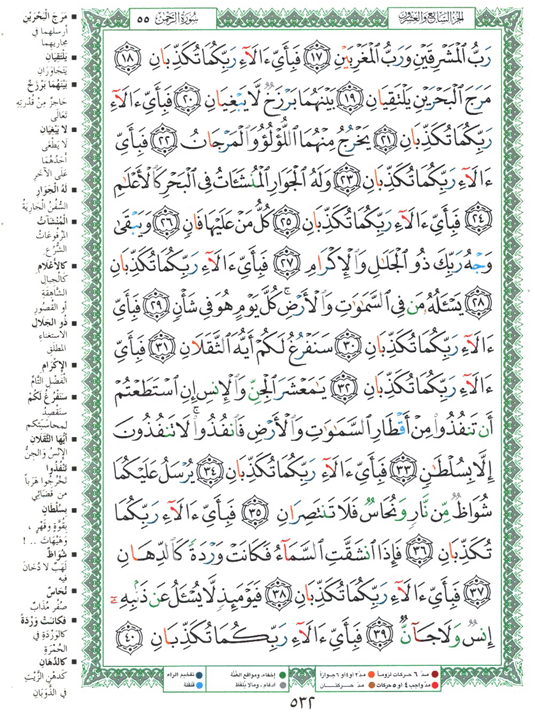 الجزء السابع والعشرون
سورة الرحمن ٥٥
رَبُّ الْمَشْرِقَيْنِ وَرَبُّ الْمَغْرِبَيْنِ ١٧ فَبِأَيِّ ءَالَآءِ رَبِّكُمَا تُكَذِّبَانِ ١٨
مَرَجَ الْبَحْرَيْنِ يَلْتَقِيَانِ ١٩ بَيْنَهُمَا بَرْزَخٌ لَّا يَبْغِيَانِ ٢٠ فَبِأَيِّ ءَالَآءِ
رَبِّكُمَا تُكَذِّبَانِ ٢١ يَخْرُجُ مِنْهُمَا اللُّؤْلُؤُ وَالْمَرْجَانُ ٢٢ فَبِأَيِّ
ءَالَآءِ رَبِّكُمَا تُكَذِّبَانِ ٢٣ وَلَهُ الْجَوَارِ الْمُنشَئَاتُ فِي الْبَحْرِ كَالْأَعْلَٰمِ
٢٤ فَبِأَيِّ ءَالَآءِ رَبِّكُمَا تُكَذِّبَانِ ٢٥ كُلُّ مَنْ عَلَيْهَا فَانٍ ٢٦ وَيَبْقَىٰ
وَجْهُ رَبِّكَ ذُو الْجَلَٰلِ وَالْإِكْرَامِ ٢٧ فَبِأَيِّ ءَالَآءِ رَبِّكُمَا تُكَذِّبَانِ
٢٨ يَسْـَٔلُهُۥ مَن فِي السَّمَٰوَٰتِ وَالْأَرْضِ ۚ كُلَّ يَوْمٍ هُوَ فِي شَأْنٍ ٢٩ فَبِأَيِّ
ءَالَآءِ رَبِّكُمَا تُكَذِّبَانِ ٣٠ سَنَفْرُغُ لَكُمْ أَيُّهَ الثَّقَلَانِ ٣١ فَبِأَيِّ
ءَالَآءِ رَبِّكُمَا تُكَذِّبَانِ ٣٢ يَٰمَعْشَرَ الْجِنِّ وَالْإِنسِ إِنِ اسْتَطَعْتُمْ
أَن تَنفُذُوا مِنْ أَقْطَارِ السَّمَٰوَٰتِ وَالْأَرْضِ فَانفُذُوا ۚ لَا تَنفُذُونَ
إِلَّا بِسُلْطَٰنٍ ٣٣ فَبِأَيِّ ءَالَآءِ رَبِّكُمَا تُكَذِّبَانِ ٣٤ يُرْسَلُ عَلَيْكُمَا
شُوَاظٌ مِّن نَّارٍ وَنُحَاسٌ فَلَا تَنتَصِرَانِ ٣٥ فَبِأَيِّ ءَالَآءِ رَبِّكُمَا
تُكَذِّبَانِ ٣٦ فَإِذَا انشَقَّتِ السَّمَآءُ فَكَانَتْ وَرْدَةً كَالدِّهَانِ
٣٧ فَبِأَيِّ ءَالَآءِ رَبِّكُمَا تُكَذِّبَانِ ٣٨ فَيَوْمَئِذٍ لَّا يُسْـَٔلُ عَن ذَنۢبِهِۦٓ
إِنسٌ وَلَا جَآنٌّ ٣٩ فَبِأَيِّ ءَالَآءِ رَبِّكُمَا تُكَذِّبَانِ ٤٠
مَرَجَ الْبَحْرَيْنِ
أرسلهما في
مجاريهما
يَلْتَقِيَانِ
يتجاوران
بَيْنَهُمَا بَرْزَخٌ
حاجز من قدرته
تعالى
لا يَبْغِيَانِ
لا يطغى
أحدهما
على الآخر
لَهُ الْجَوَارِ
السفن الجارية
الْمُنْشَآتُ
المرفوعات
الشرع
كَالأعْلامِ
كالجبال
الشاهقة
أو القصور
ذُو الْجَلَالِ
الاستغناء
المطلق
الإِكْرَامِ
الفضل التام
سَنَفْرُغُ لَكُمْ
سنقصد
لمحاسبتكم
أَيُّهَا الثَّقَلانِ
الإنس والجن
تَنْفُذُوا
تخرجوا هرباً
من قضائي
بِسُلْطَانٍ
بقوة وقهر ،
وهيهات .. !
شُوَاظٌ
لهب لا دخان
فيه
نُحَاسٌ
صفر مذاب
فَكَانَتْ وَرْدَةً
كالوردة في
الحمرة
كَالدِّهَانِ
كدهن الزيت
في الذوبان
مدّ ٦ حركات لزوماً
مدّ ٢ أو ٤ أو ٦ جوازاً
إخفاء، ومواقع الغُنَّة
تفخيم الراء
مدّ واجب ٤ أو ٥ حركات
مدّ حركتان
ادغام، وما لا يُلفظ
قلقلة
٥٣٢